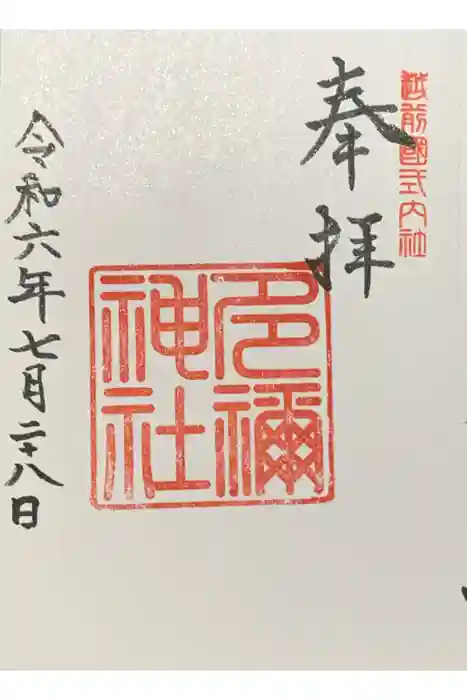 越前國式内社
奉拝
多禰神社
令和六年七月二十八日